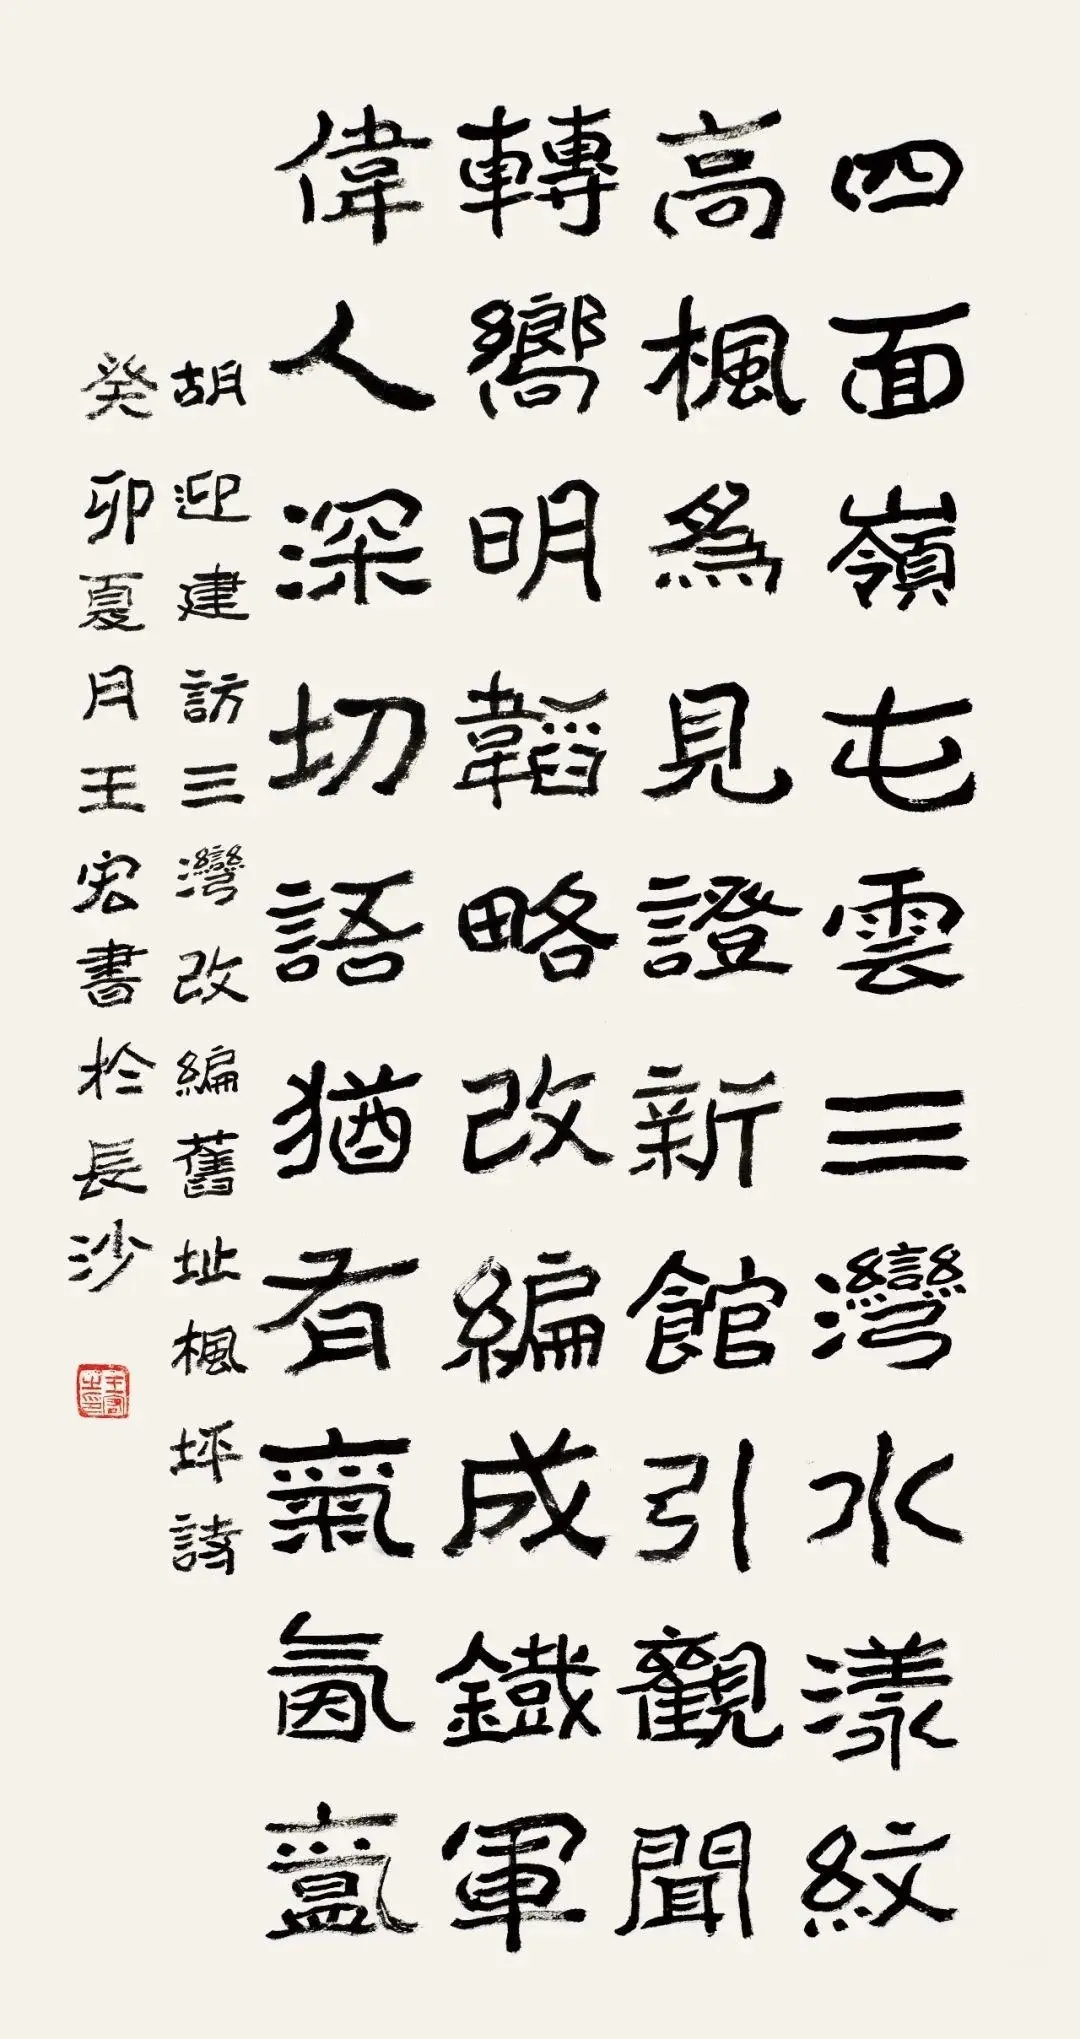 四面嶺屯雲三灣水漾紋
高楓為見證新館引觀聞
轉嚮明韜略改編成鐵軍
偉人深切語猶有氣氤氳
胡迎建訪三灣改編舊址楓坪詩
癸卯夏月王宏書於長沙